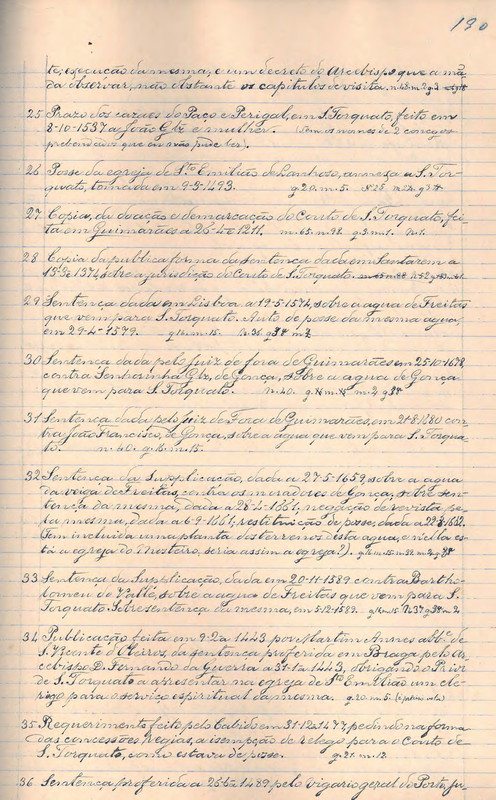 190
te, execução da mesma, e um decreto do Arcebispo que a mã
da observar, não obstante os capitulos de visita.
25 Prazo dos cazaes do Paço e Perigal, em S. Torquato, feito em
8-10-1537 a João Glz e mulher. (Tem os nomes de 2 conegos
prebendados que então, pude ler).
26 Posse da egreja de Sto Emilião de annexa a S. Tor-
quato, tomada em 9-8-1493. g. 20. m. 5.
27 Copia, da doação e demarcação do Couto de S. Torquato, fei-
ta em Guimarães a 26-4-1211. m. 65. n. 92. g. 3. m. 1. N. 1.
28 Copia da publica forma de sentença dada em Santarem a
1372, sobre a jurisdição do Couto de S. Torquato.
29 Sentença dada em Lisboa a 19-5-1574, sobre a agua de Freitas
que vem para S. Torquato. Auto de posse da mesma agua,
em 29-4-1579. g. 16. m. 15. N. 36. g 38 m 2
30 Sentença dada pelo juiz de fora de Guimarães em 25-10-1678,
contra Senhorinha Glz, de Gonça, sobre a agua de Gonça
que vem para S. Torquato. N. 40. m. 2 g 38
31 Sentença dada pelo juiz de Fora de Guimarães, em 21-8-1680 con
tra João Francisco, de Gonça, sobre a agua que vem para S. Torqua-
to. n. 40. g. 16. m. 15.
32 Sentença da Supplicação, dada a 27-5-1659, sobre a agua
da veiga de Freitas, contra os moradores de Gonça, sobre sen-
tença da mesma, dada a 28-4-1661, negação de revista pe-
la mesma, dada a 6-9-1661, restituição de posse, dada a 22-8-1662.
(Tem incluida uma planta dos terrenos desta agua, e nella es-
tá a egreja do Mosteiro, seria assim a egreja?).
33 Sentença da Supplicação, dada em 20-11-1589 contra Bartho-
lomeu do Valle, sobre a agua de Freitas que vem para S.
Torquato. Sobresentença da mesma, em 5-12-1589. g. 16 m. 15 N. 37 g. 38 m. 2
34 Publicação feita em 9-2 a 1443 por Martim Annes abb.e de
S. Vicente d'Oleiros, da sentença proferida em Braga pelo Ar-
cebispo D. Fernando da Guerra a 31-1 a 1443, obrigando o Prior
de S. Torquato a apresentar na egreja de Sto Emilião um cle-
rigo para o serviço espiritual da mesma. g. 20. m. 5.
35 Requerimento feito pelo Cabido em 31-12 a 1477, pedindo na forma
das concessões regias, a isempção de relego para o Couto de
S. Torquato, como estava de posse. g. 25. m. 12.
36 Sentença proferida a 1489 pelo vigario geral do Porto, ju-